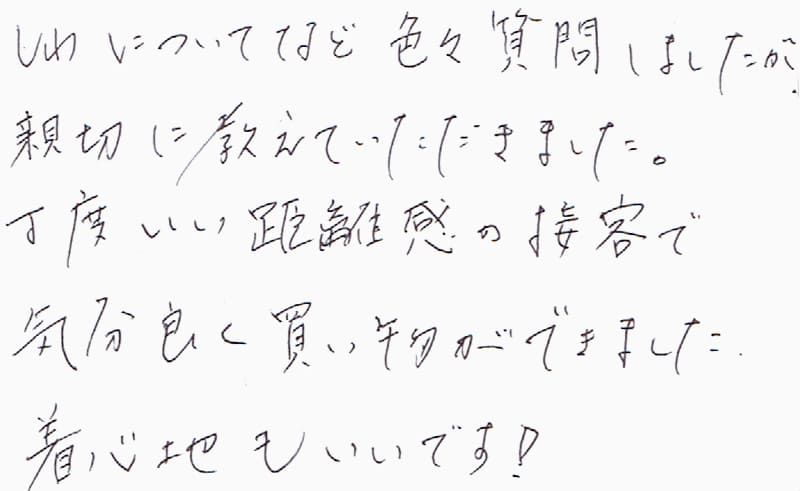 しわについてなど色々質問しましたが、
親切に教えていただきました。
丁度いい距離感の接客で
気分良く買い物ができました。
着心地もいいです!